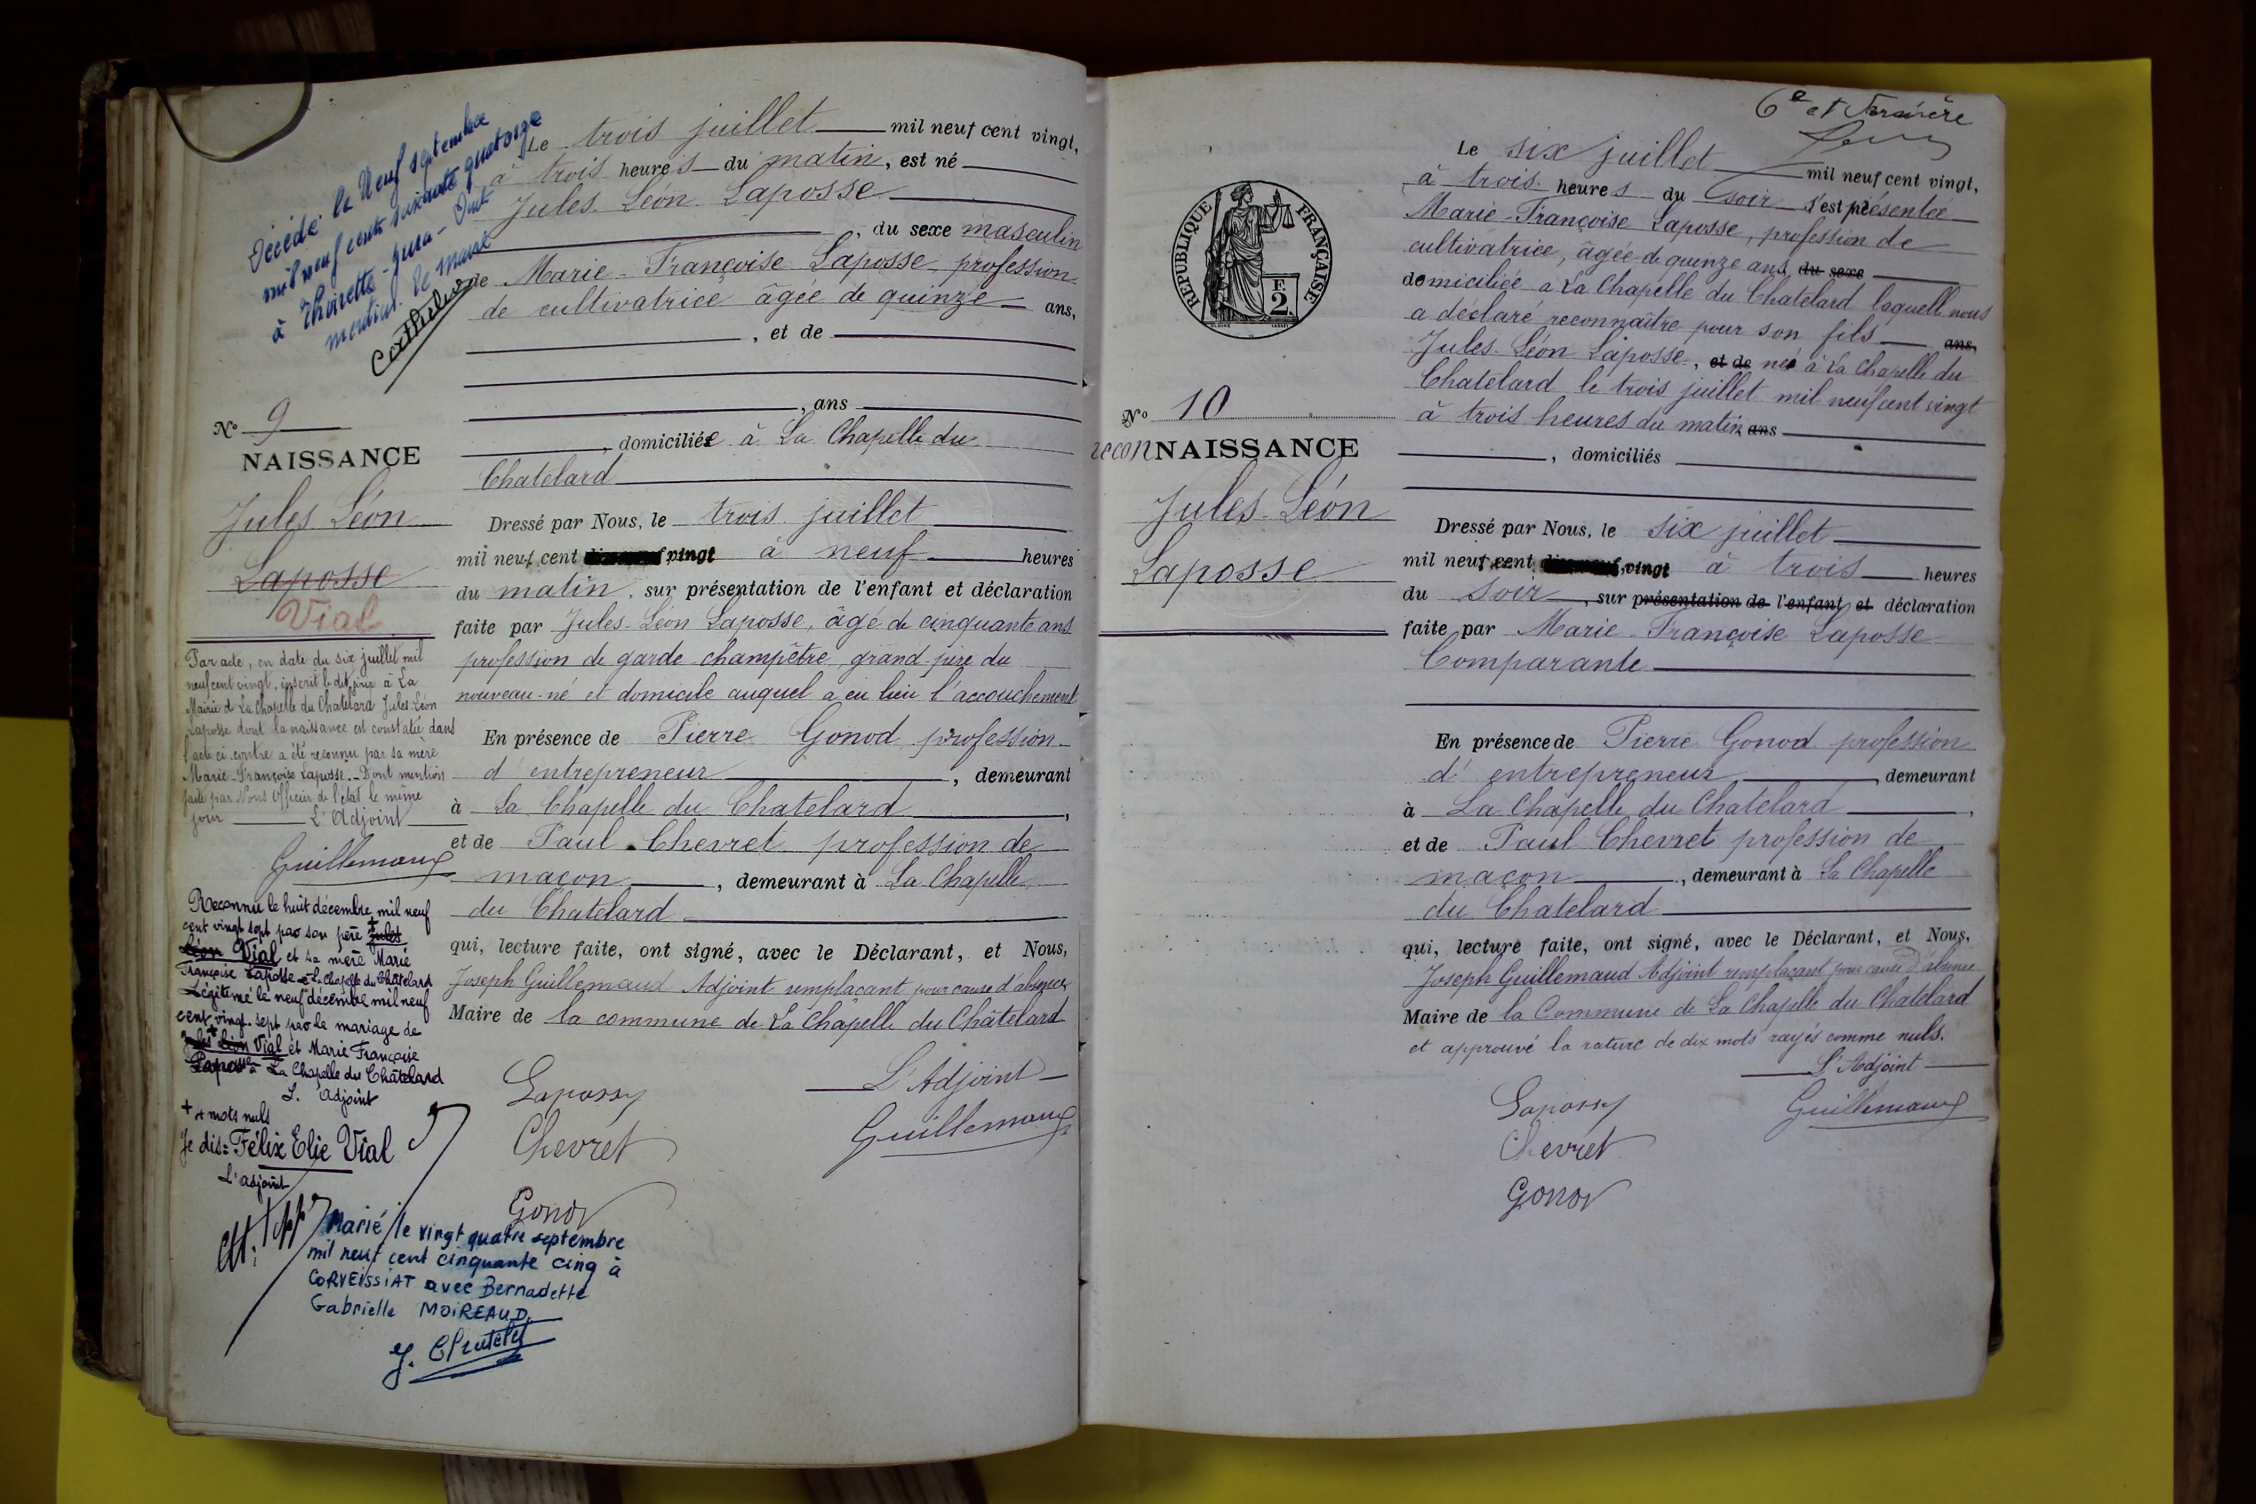 Décédé le Neuf septembre
mil neuf cent soixante quatorze
à Thoirette - Jura - Dont
mention. Le Maire
Le trois juillet mil neuf cent vingt,
à trois heures du matin, est né
Jules Léon Laposse
, du sexe masculin
de Marie-Françoise Laposse profession
de cultivatrice âgée de quinze ans,
, et de
, ans
, domiciliée à La Chapelle du
Chatelard
Dressé par Nous, le trois juillet
mil neuf cent vingt à neuf heures
du matin, sur présentation de l'enfant et déclaration
faite par Jules-Léon Laposse, âgé de cinquante ans
profession de garde-champêtre grand père du
nouveau-né et domicile auquel a eu lieu l'accouchement
En présence de Pierre Gonod profession
d'entrepreneur, demeurant
à La Chapelle du Chatelard,
et de Paul Chevret profession de
maçon, demeurant à La Chapelle
du Chatelard
qui, lecture faite, ont signé, avec le Déclarant, et Nous,
Joseph Guillemaud Adjoint remplaçant pour cause d'absence
Maire de la commune de La Chapelle du Châtelard
L'Adjoint
Laposse
Guillemaud
Chevret
Gonod
N° 9
NAISSANCE
Jules Léon
Laposse
Vial
Par acte, en date du six juillet mil
neuf cent vingt, inscrit le dit jour à La
Mairie de La Chapelle du Chatelard Jules-Léon
Laposse dont la naissance est constatée dans
l'acte ci-contre a été reconnu par sa mère
Marie-Françoise Laposse. - Dont mention
faite par Nous Officier de l'état le même
jour L'Adjoint
Guillemaud
Reconnu le huit décembre mil neuf
cent vingt sept par son père + Jules
Léon Vial et sa mère Marie
Françoise Laposse à La Chapelle du Châtelard
Légitimé le neuf décembre mil neuf
cent vingt-sept par le mariage de
Jules + Léon Vial et Marie Françoise
Laposse à La Chapelle du Châtelard
L'adjoint
+ 4 mots nuls
Je dis = Félix Elie Vial
L'adjoint
Marié le vingt quatre septembre
mil neuf cent cinquante cinq à
CORVEISSIAT avec Bernadette
Gabrielle MOIREAUD.
6e et dernière
N° 10
reconNAISSANCE
Jules-Léon
Laposse
RÉPUBLIQUE FRANÇAISE
2
Le six juillet mil neuf cent vingt,
à trois heures du soir s'est présentée
Marie-Françoise Laposse, profession de
cultivatrice, âgée de quinze ans, du sexe
domiciliée à La Chapelle du Chatelard laquelle nous
a déclaré reconnaître pour son fils ans,
Jules-Léon Laposse, et de né à La Chapelle du
Chatelard le trois juillet mil neuf cent vingt
à trois heures du matin ans
, domiciliés
Dressé par Nous, le six juillet
mil neuf cent vingt à trois heures
du soir, sur présentation de l'enfant et déclaration
faite par Marie-Françoise Laposse
Comparante
En présence de Pierre Gonod profession
d'entrepreneur, demeurant
à La Chapelle du Chatelard,
et de Paul Chevret profession de
maçon, demeurant à La Chapelle
du Chatelard
qui, lecture faite, ont signé, avec le Déclarant, et Nous,
Joseph Guillemaud Adjoint remplaçant pour cause d'absence
Maire de la Commune de La Chapelle du Chatelard
et approuvé la rature de dix mots rayés comme nuls.
L'Adjoint
Laposse
Guillemaud
Chevret
Gonod